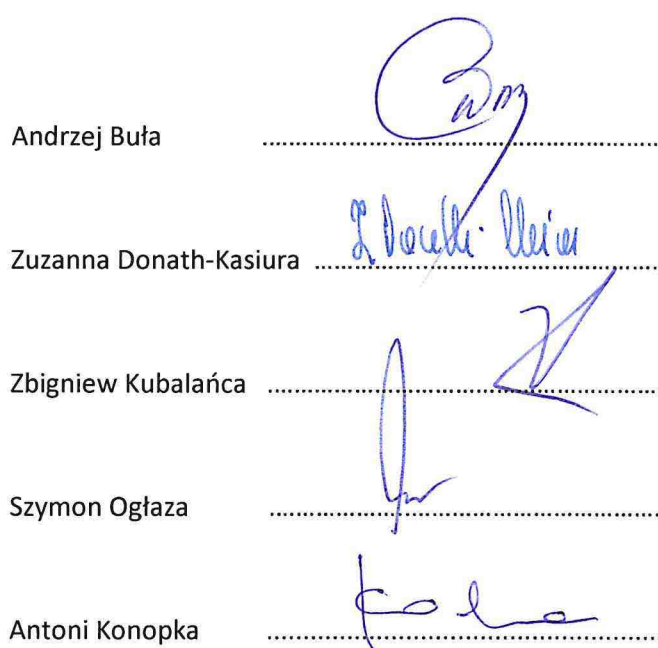 Andrzej Buła ........................................................
Zuzanna Donath-Kasiura ................................................
Zbigniew Kubalańca ...........................................................
Szymon Ogłaza ........................................................
Antoni Konopka ........................................................